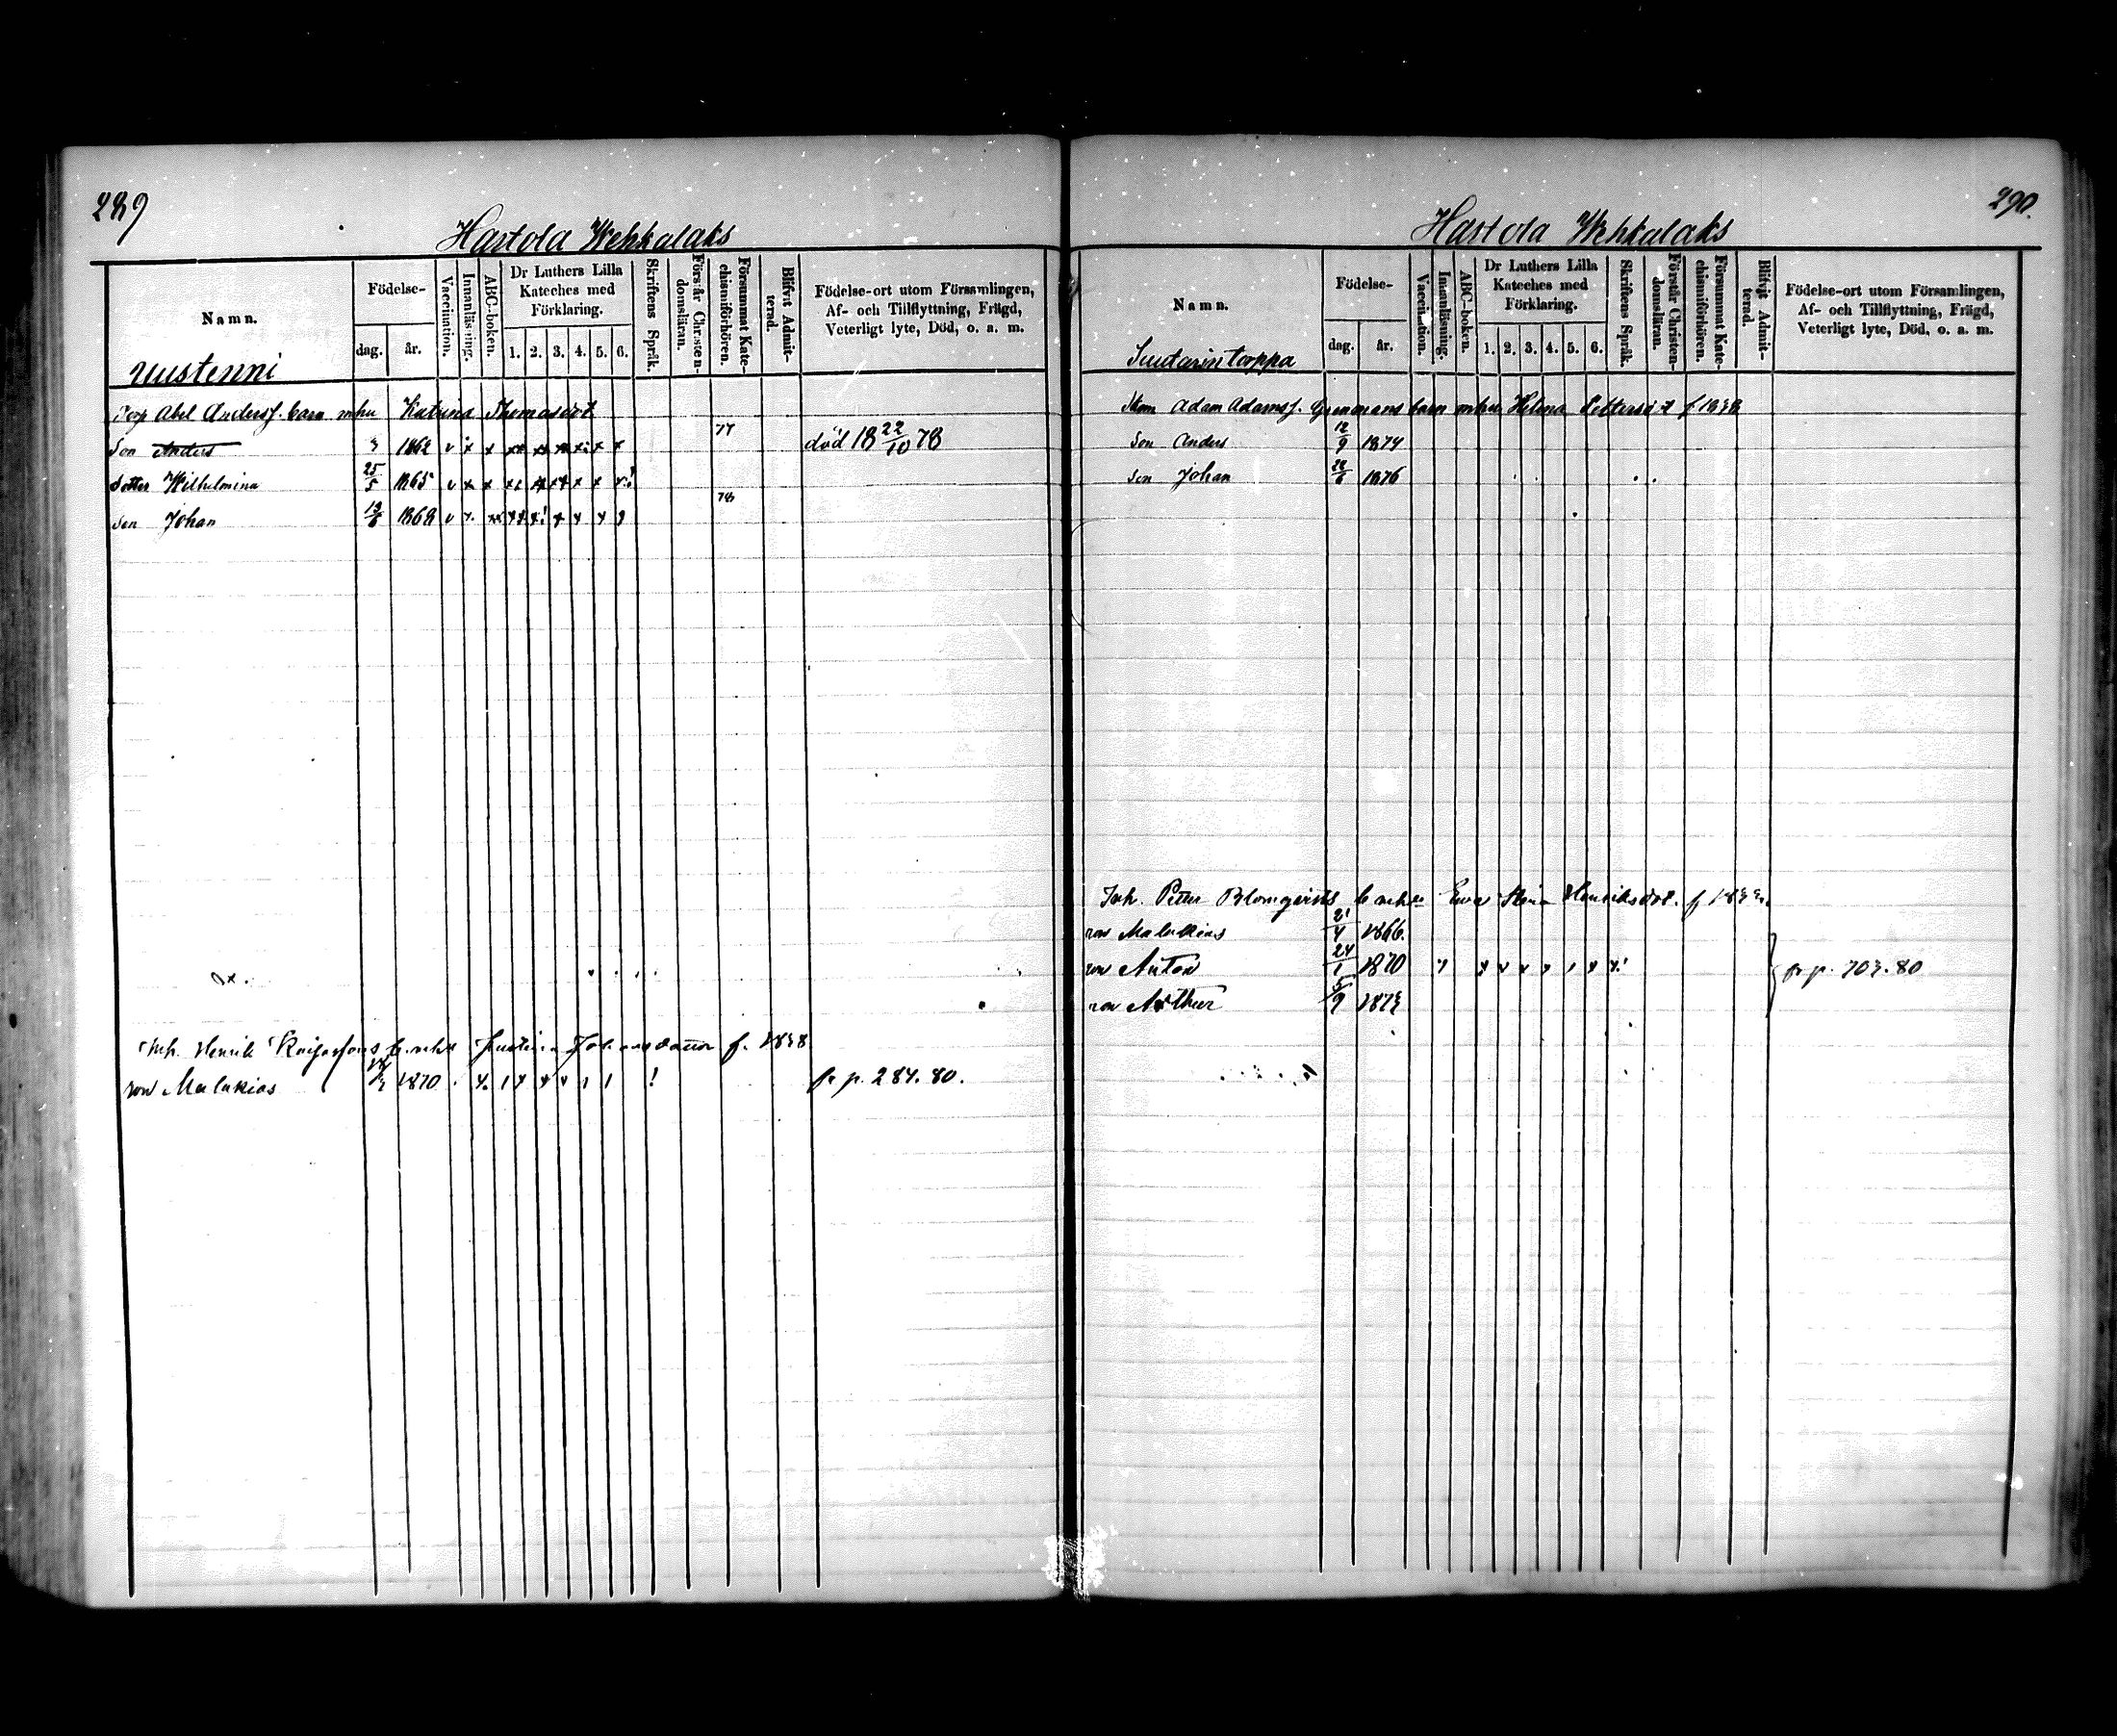 289
Hastola Wehkalaks
Namn.
Födelse-
dag.
år.
Vaccination.
Innanläsning.
ABC-boken.
Dr Luthers Lilla
Kateches med
Förklaring.
1. 2. 3. 4. 5. 6.
Skriftens Språk.
Förstår Christen-
domsläran.
Försummat Kate-
chismiförhören.
Blifvit Admit-
terad.
Födelse-ort utom Församlingen,
Af- och Tillflyttning, Frägd,
Veterligt lyte, Död, o. a. m.
Uustenni
Torp Abel Andersf. barn mhu Katrina Thomasdot
Son Anders 1862 v x x 77 död 18 22/10 78
dotter Wilhelmina 25/5 1865 v x x
son Johan 1868 v x 78
Inh. Henrik f. 1838
son Malakias 1870 fr p. 284. 80.
290.
Hastola Wehkalaks
Namn.
Födelse-
dag.
år.
Vaccination.
Innanläsning.
ABC-boken.
Dr Luthers Lilla
Kateches med
Förklaring.
1. 2. 3. 4. 5. 6.
Skriftens Språk.
Förstår Christen-
domsläran.
Försummat Kate-
chismiförhören.
Blifvit Admit-
terad.
Födelse-ort utom Församlingen,
Af- och Tillflyttning, Frägd,
Veterligt lyte, Död, o. a. m.
Suutarin torppa
Adam Adamsf. Grenmans barn mhu Helena f 1838
Son Anders 12/9 1874
son Johan 1876
Inh. Petter Blomqvists b mhu Ewa Stina Henriksdot. f
son Malakias 1866.
son Anton 24/1 1870 fr p. 703. 80
son Arthur 5/9 1873